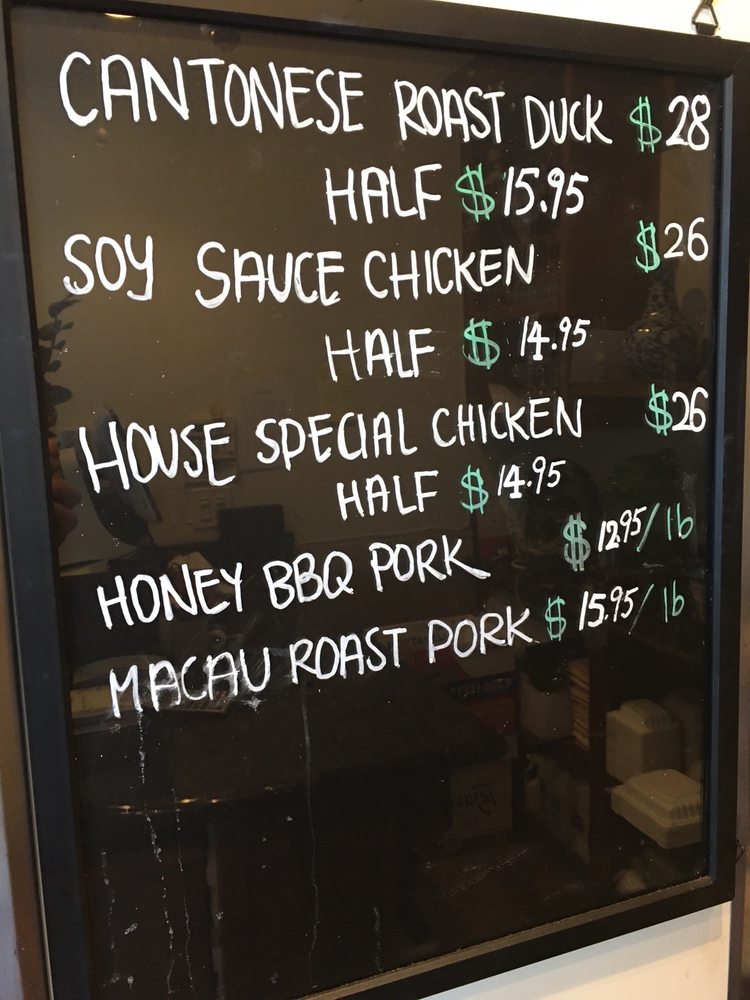 CANTONESE ROAST DUCK $28
HALF $15.95
SOY SAUCE CHICKEN $26
HALF $14.95
HOUSE SPECIAL CHICKEN $26
HALF $14.95
HONEY BBQ PORK $12.95/lb
MACAU ROAST PORK $15.95/lb